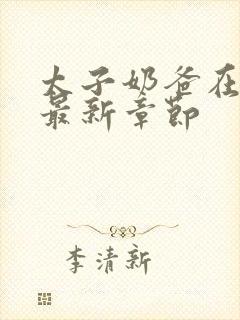 太子奶爸在
最新章节
李清新